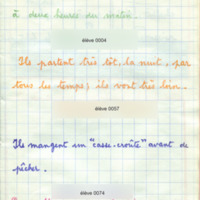 à deux heures du matin.
élève 0004
Ils partent très tôt, la nuit, par
tous les temps ; ils vont très loin.
élève 0057
Ils mangent un "casse-croûte" avant de
pêcher.
élève 0074